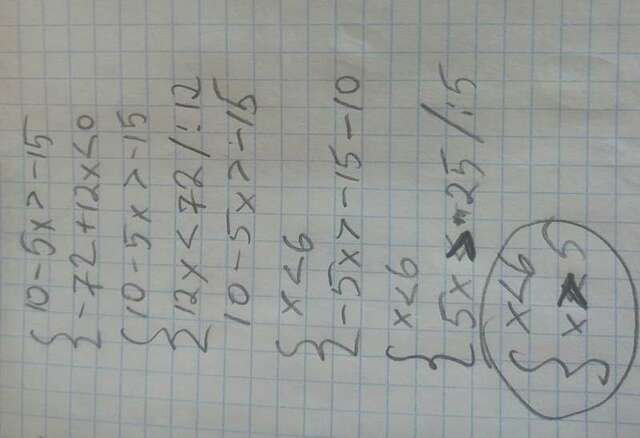 { 10-5x>-15
-72+12x≤0
{ 10-5x>-15
12x<72 /:12
10-5x>-15
{ x<6
-5x>-15-10
{ x<6
{ x<6